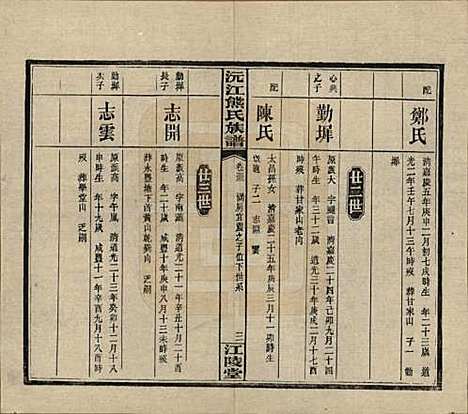 配
鄭氏
清嘉慶五年庚申二月初七戌時生 年二十三歲 道
光二年壬午七月十三午時歿 葬甘家山 子一 勤
墀
廿二世
心
之子
勤墀
原派大 字 清嘉慶二十四年己卯九月二十
午時生 年三十二歲 道光三十年庚戌十一月十七
時歿 葬甘家山老內
配
陳氏
太昌孫女 清嘉慶二十五年庚辰三月十一卯時生
歿 子二 志開 雲
沅江熊氏族譜
卷 房宜 之子值下世系
三
江陵堂
廿三世
勤墀
長子
志開
原派高 字南 清道光二十一年辛丑十月二十酉
時生 年二十歲 咸豐十年庚申八月十三未時歿
葬永 地下首黃山 內 乏嗣
勤墀
次子
志雲
原派高 字午風 清道光二十三年癸卯十二月十八
時生 年十九歲 咸豐十一年辛酉九月十八酉時
歿 葬學堂山 乏嗣